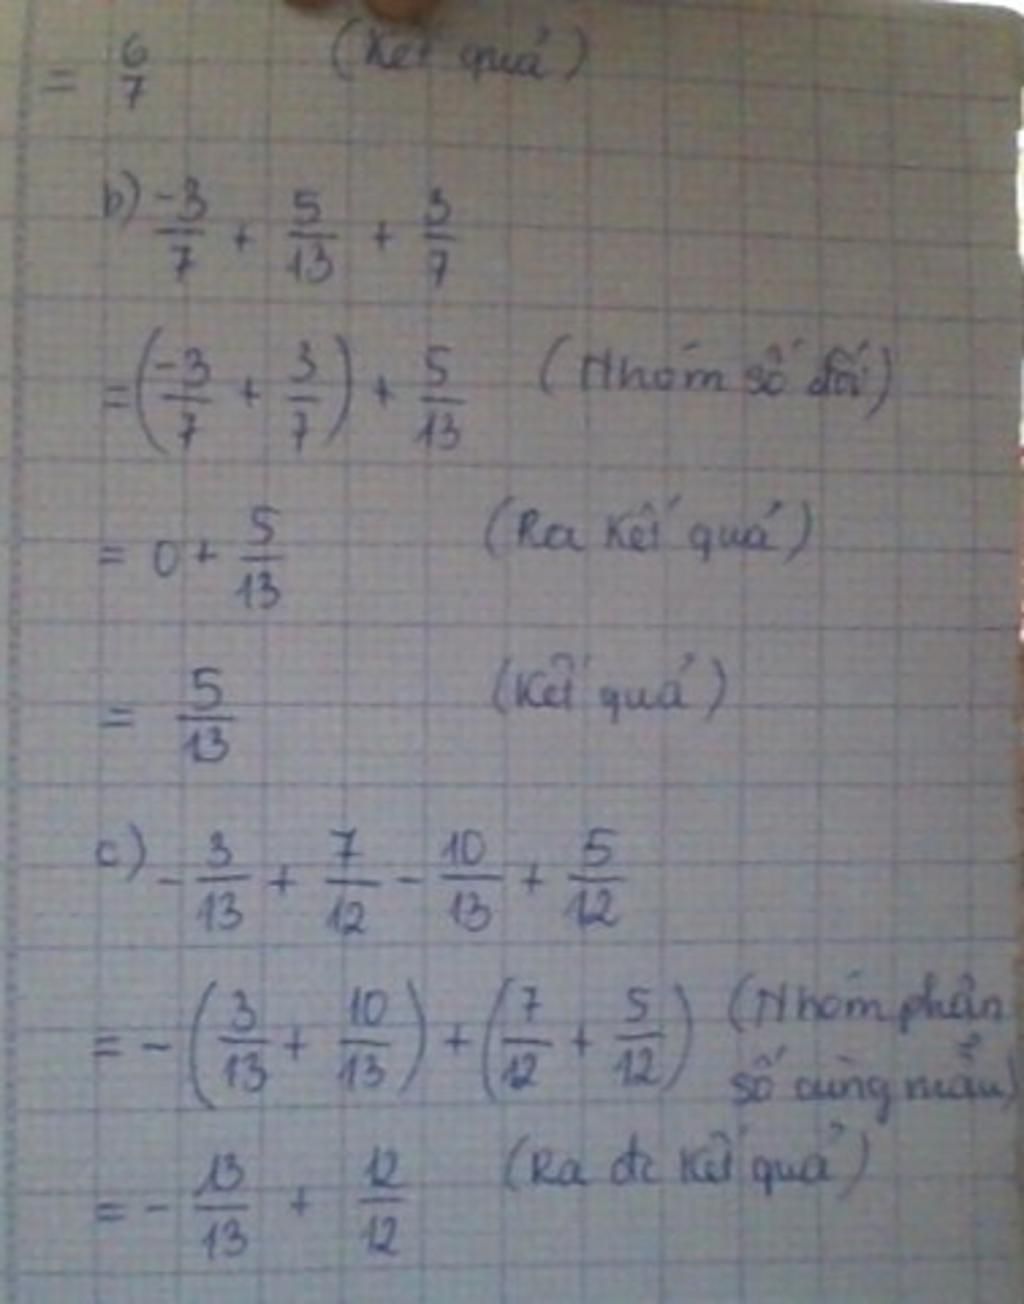 = 6/7 (Kết quả)
b) -3/7 + 5/13 + 3/7
= (-3/7 + 3/7) + 5/13 (Nhóm số đối)
= 0 + 5/13 (Ra kết quả)
= 5/13 (Kết quả)
c) - 3/13 + 7/12 - 10/13 + 5/12
= - (3/13 + 10/13) + (7/12 + 5/12) (Nhóm phân
số cùng mẫu)
= - 13/13 + 12/12 (Ra đc kết quả)